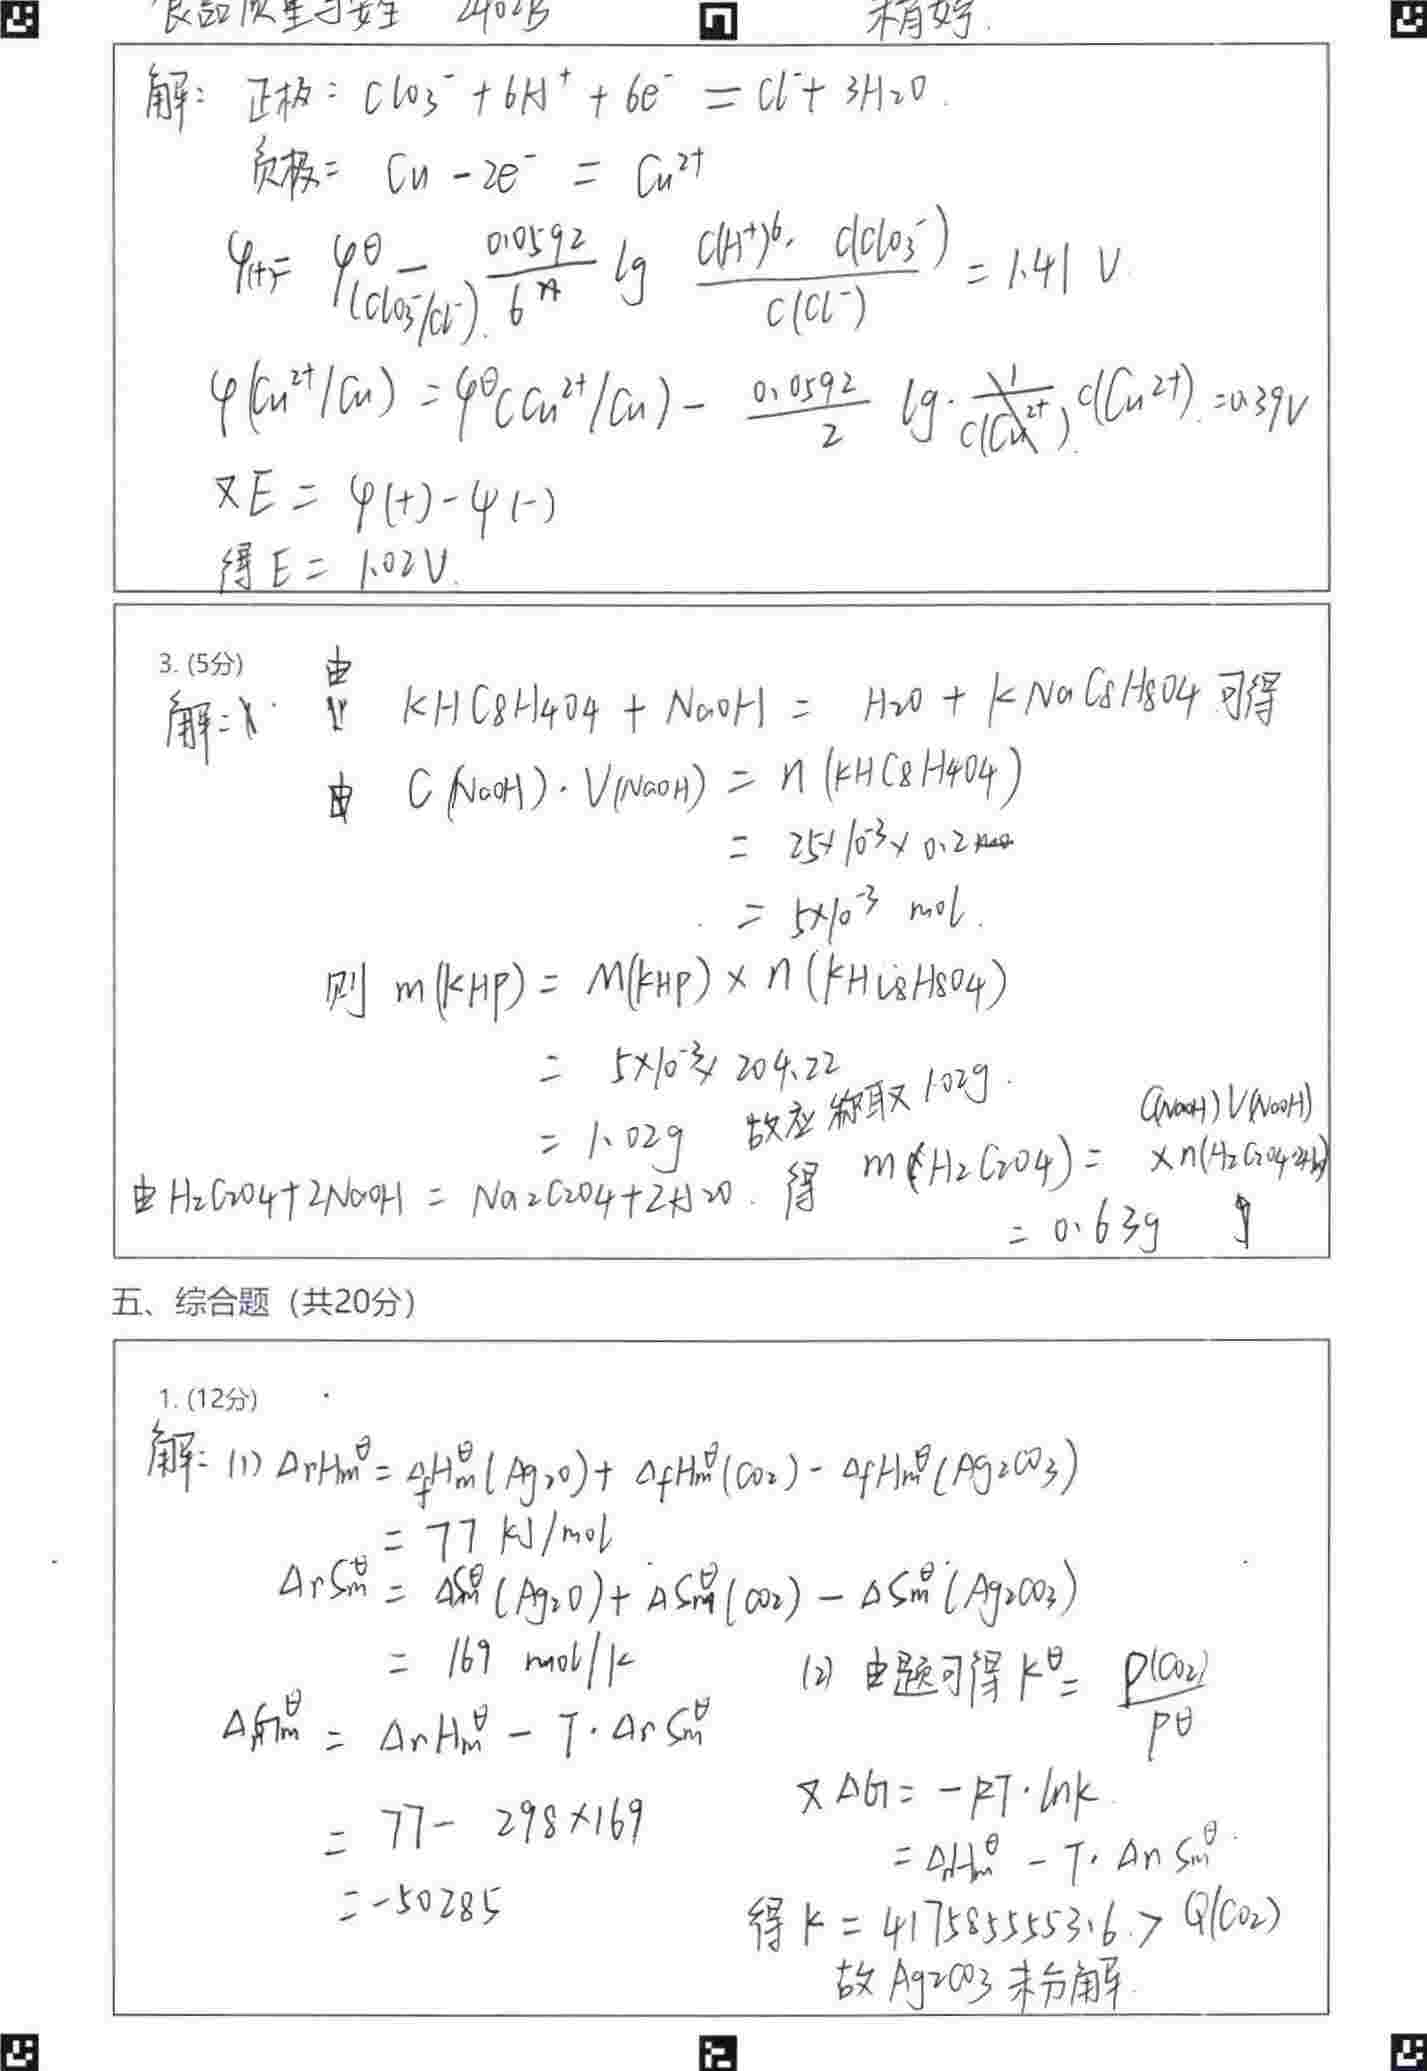 2402B
解: 正极: ClO3⁻ + 6H⁺ + 6e⁻ = Cl⁻ + 3H2O.
负极: Cu - 2e⁻ = Cu²⁺
φ(+)= φθ(ClO3⁻/Cl⁻) - 0.0592/6 lg c(H⁺)⁶· c(ClO3⁻)/c(Cl⁻) = 1.41 V
φ(Cu²⁺/Cu) = φθ(Cu²⁺/Cu) - 0.0592/2 lg· c(Cu2+). =0.39V
又E = φ(+) - φ(-)
得E = 1.02V.
3. (5分)
解: 由 KHC8H4O4 + NaOH = H2O + KNaC8H8O4 可得
由 C(NaOH)·V(NaOH) = n(KHC8H4O4)
= 25×10⁻³× 0.2
= 5×10⁻³ mol.
则 m(KHP) = M(KHP) × n(KHC8H8O4)
= 5×10⁻³× 204.22
= 1.02g 故应称取1.02g.
由H2C2O4+2NaOH = Na2C2O4+2H2O. 得 m(H2C2O4) = C(NaOH)V(NaOH)
×n(H2C2O4·2H2O)
= 0.63g
五、综合题（共20分）
1. (12分)
解: (1) ΔrHmθ = ΔfHmθ(Ag2O) + ΔfHmθ(CO2) - ΔfHmθ(Ag2CO3)
= 77 kJ/mol
ΔrSmθ = ΔSmθ(Ag2O) + ΔSmθ(CO2) - ΔSmθ(Ag2CO3)
= 169 mol/k
ΔrGmθ = ΔrHmθ - T·ΔrSmθ
= 77 - 298×169
= -50285
(2) 由题可得 Kθ = P(CO2)/Pθ
又ΔG = -RT·lnk.
= ΔrHmθ - T·ΔrSmθ.
得 k = 4175855553.6 > Q(CO2)
故 Ag2CO3 未分解.